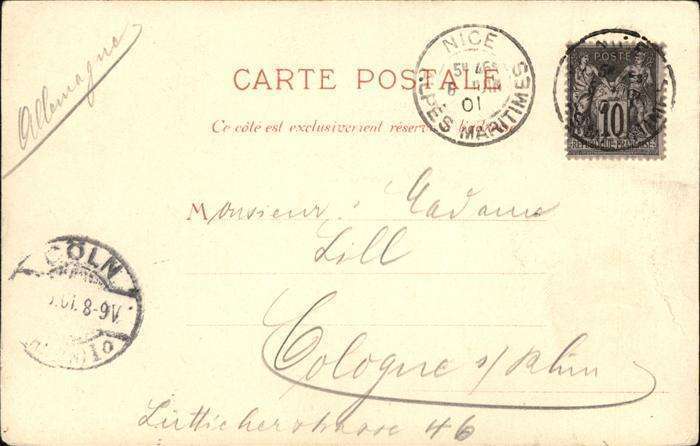 Allemagne
CARTE POSTALE
Ce côté est exclusivement réservé
NICE
01
ALPES MARITIMES
POSTE
10
REPUBLIQUE FRANÇAISE
Monsieur & Madame
Lill
Cologne s/Rhin
Lütticherstrasse 46
CÖLN
8-9V.